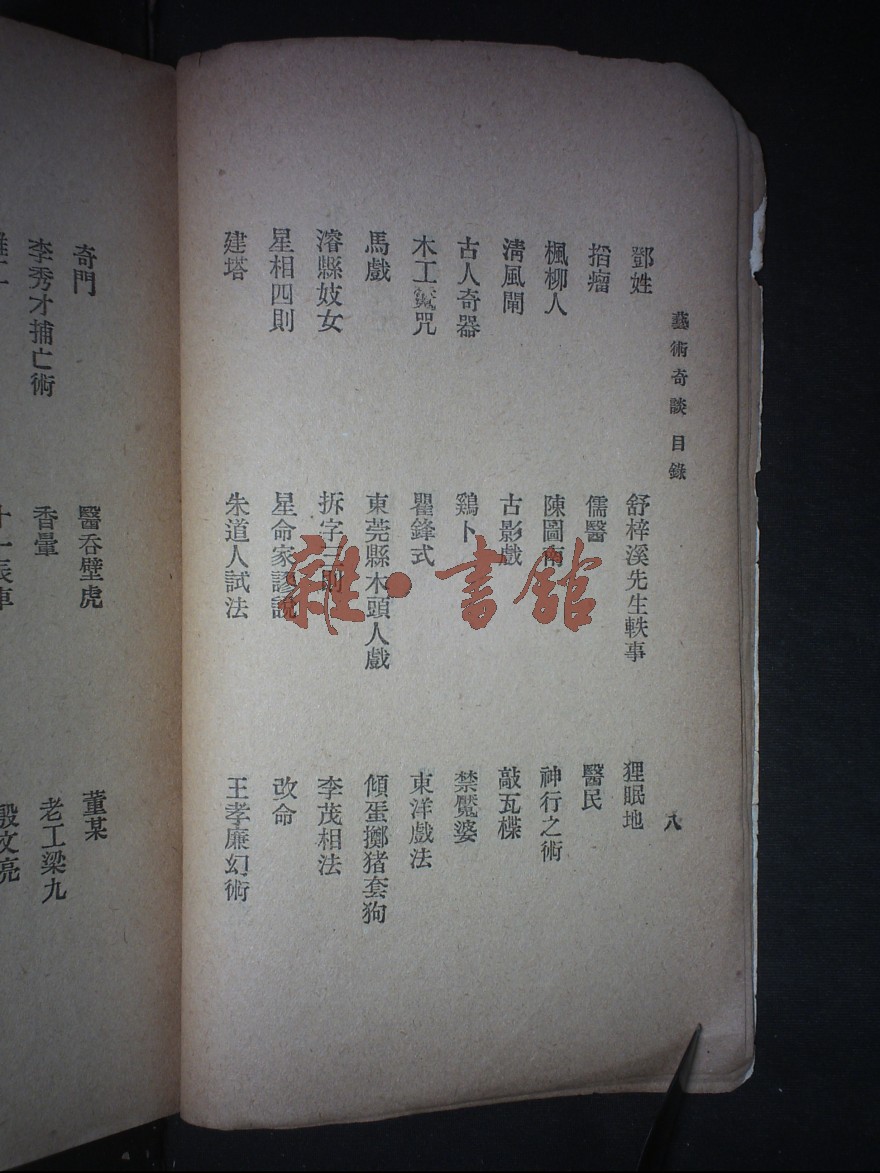 藝術奇談 目錄 八
鄧姓 舒梓溪先生軼事 狸眠地
掐瘤 儒醫 醫民
楓柳人 陳圖南 神行之術
清風閘 古影戲 敲瓦楪
古人奇器 鷄卜 禁魘婆
木工 咒 瞿鋒式 東洋戲法
馬戲 東莞縣木頭人戲 傾蛋擲猪套狗
濬縣妓女 拆字三則 李茂相法
星相四則 星命家謬說 改命
建塔 朱道人試法 王孝廉幻術
奇門 醫吞壁虎 董某
李秀才捕亡術 香暈 老工梁九
殷文亮
雜·書館